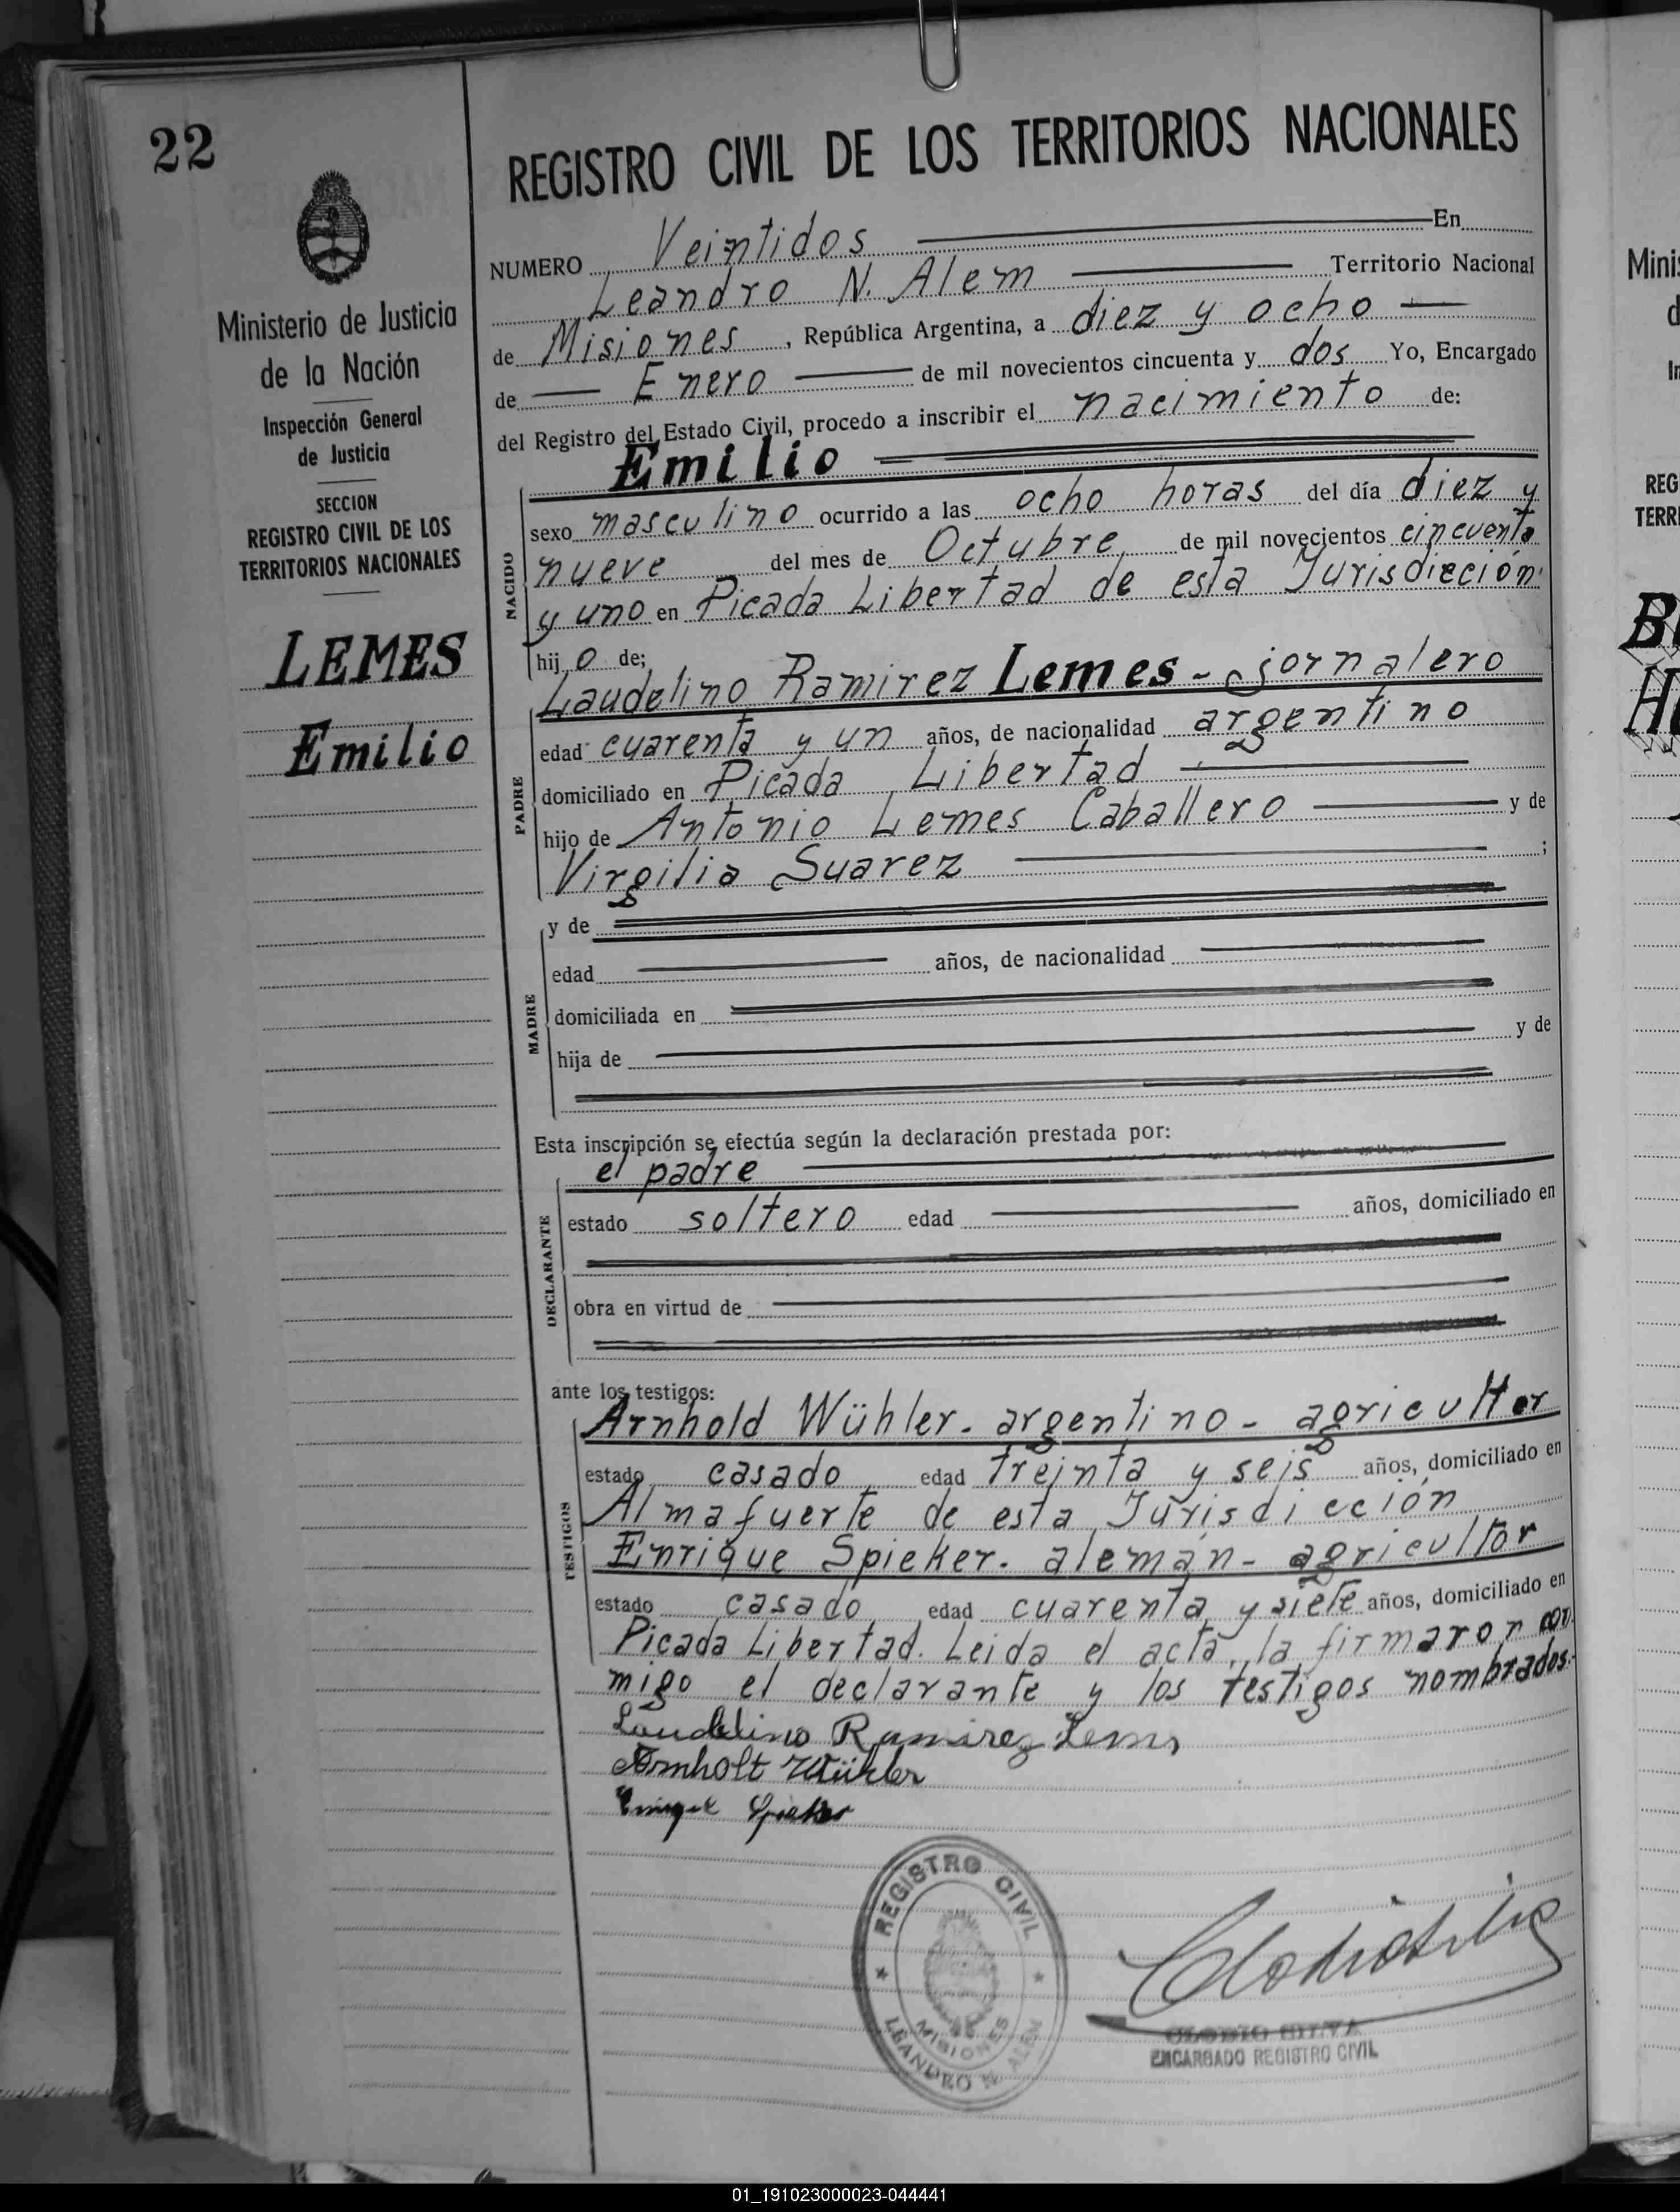 22
Ministerio de Justicia
de la Nación
Inspección General
de Justicia
SECCION
REGISTRO CIVIL DE LOS
TERRITORIOS NACIONALES
LEMES
Emilio
REGISTRO CIVIL DE LOS TERRITORIOS NACIONALES
NUMERO Veintidos En
Leandro N. Alem Territorio Nacional
de Misiones, República Argentina, a diez y ocho
de Enero de mil novecientos cincuenta y dos Yo, Encargado
del Registro del Estado Civil, procedo a inscribir el nacimiento de:
NACIDO
Emilio
sexo masculino ocurrido a las ocho horas del día diez y
nueve del mes de Octubre, de mil novecientos cincuenta
y uno en Picada Libertad de esta Jurisdicción
hijo de;
PADRE
Laudelino Ramirez Lemes - jornalero
edad cuarenta y un años, de nacionalidad argentino
domiciliado en Picada Libertad
hijo de Antonio Lemes Caballero y de
Virgilia Suarez ;
MADRE
y de
edad años, de nacionalidad
domiciliada en
hija de y de
Esta inscripción se efectúa según la declaración prestada por:
DECLARANTE
el padre
estado soltero edad años, domiciliado en
obra en virtud de
ante los testigos:
TESTIGOS
Arnhold Wühler - argentino - agricultor
estado casado edad treinta y seis años, domiciliado en
Almafuerte de esta Jurisdicción
Enrique Spieker - alemán - agricultor
estado casado edad cuarenta y siete años, domiciliado en
Picada Libertad. Leida el acta, la firmaron con
migo el declarante y los testigos nombrados.-
Laudelino Ramirez Lemes
Arnholt Wühler
Enrique Spieker
REGISTRO CIVIL
MISIONES
LEANDRO N. ALEM
CLODIO SILVA
ENCARGADO REGISTRO CIVIL
Minis
d
In
REG
TERR
01_191023000023-044441